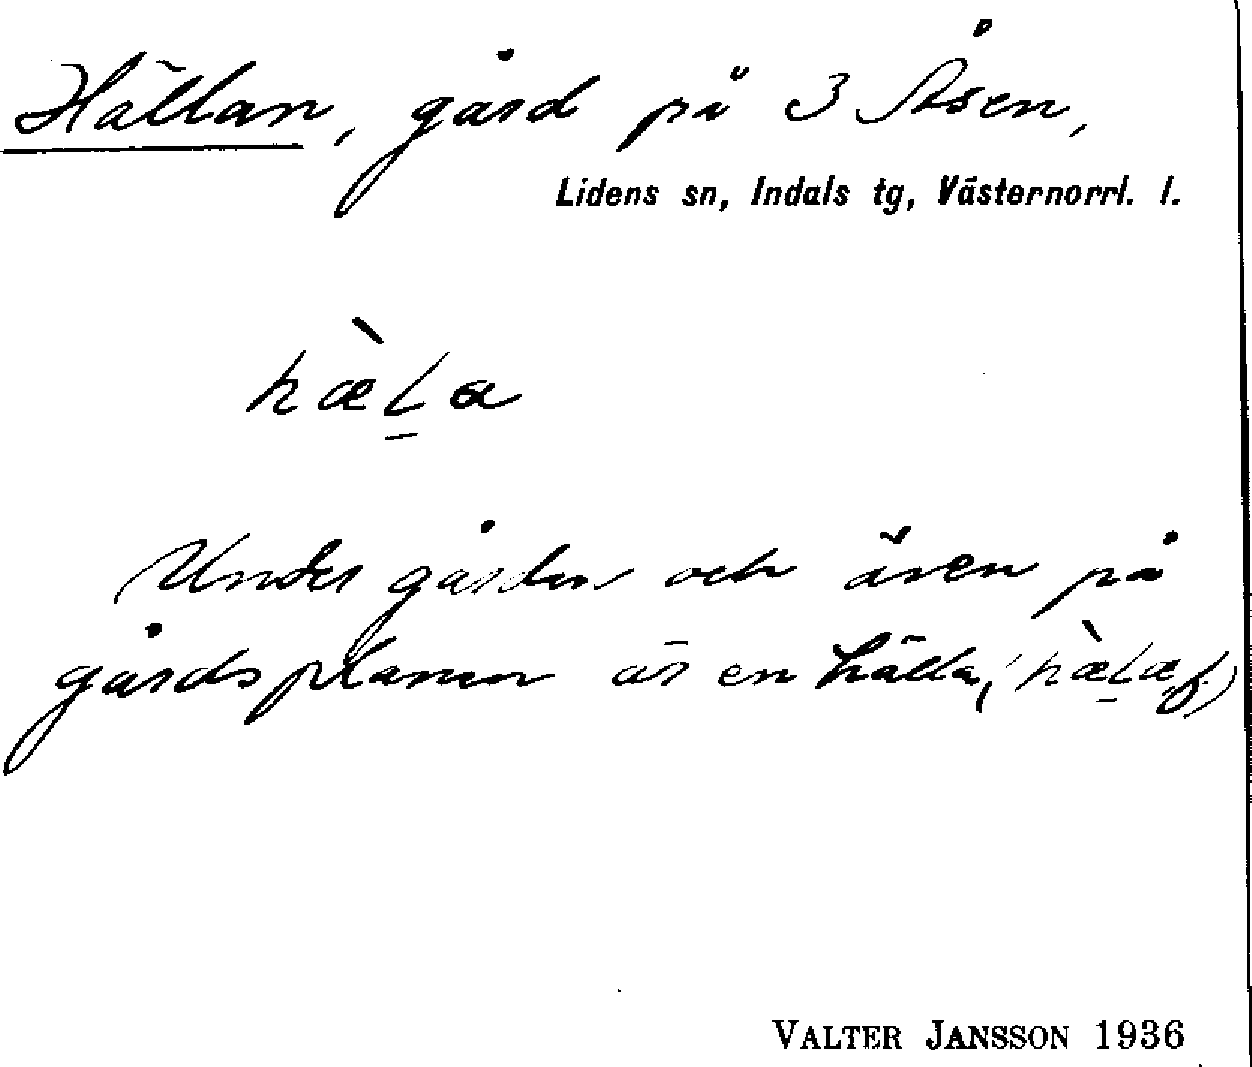 Hällan, gård på 3 Åsen,
Lidens sn, Indals tg, Västernorrl. l.
hæ̀L̲a
Under gården och även på
gårdsplanen är en hälla, (hæ̀L̲a f.)
VALTER JANSSON 1936